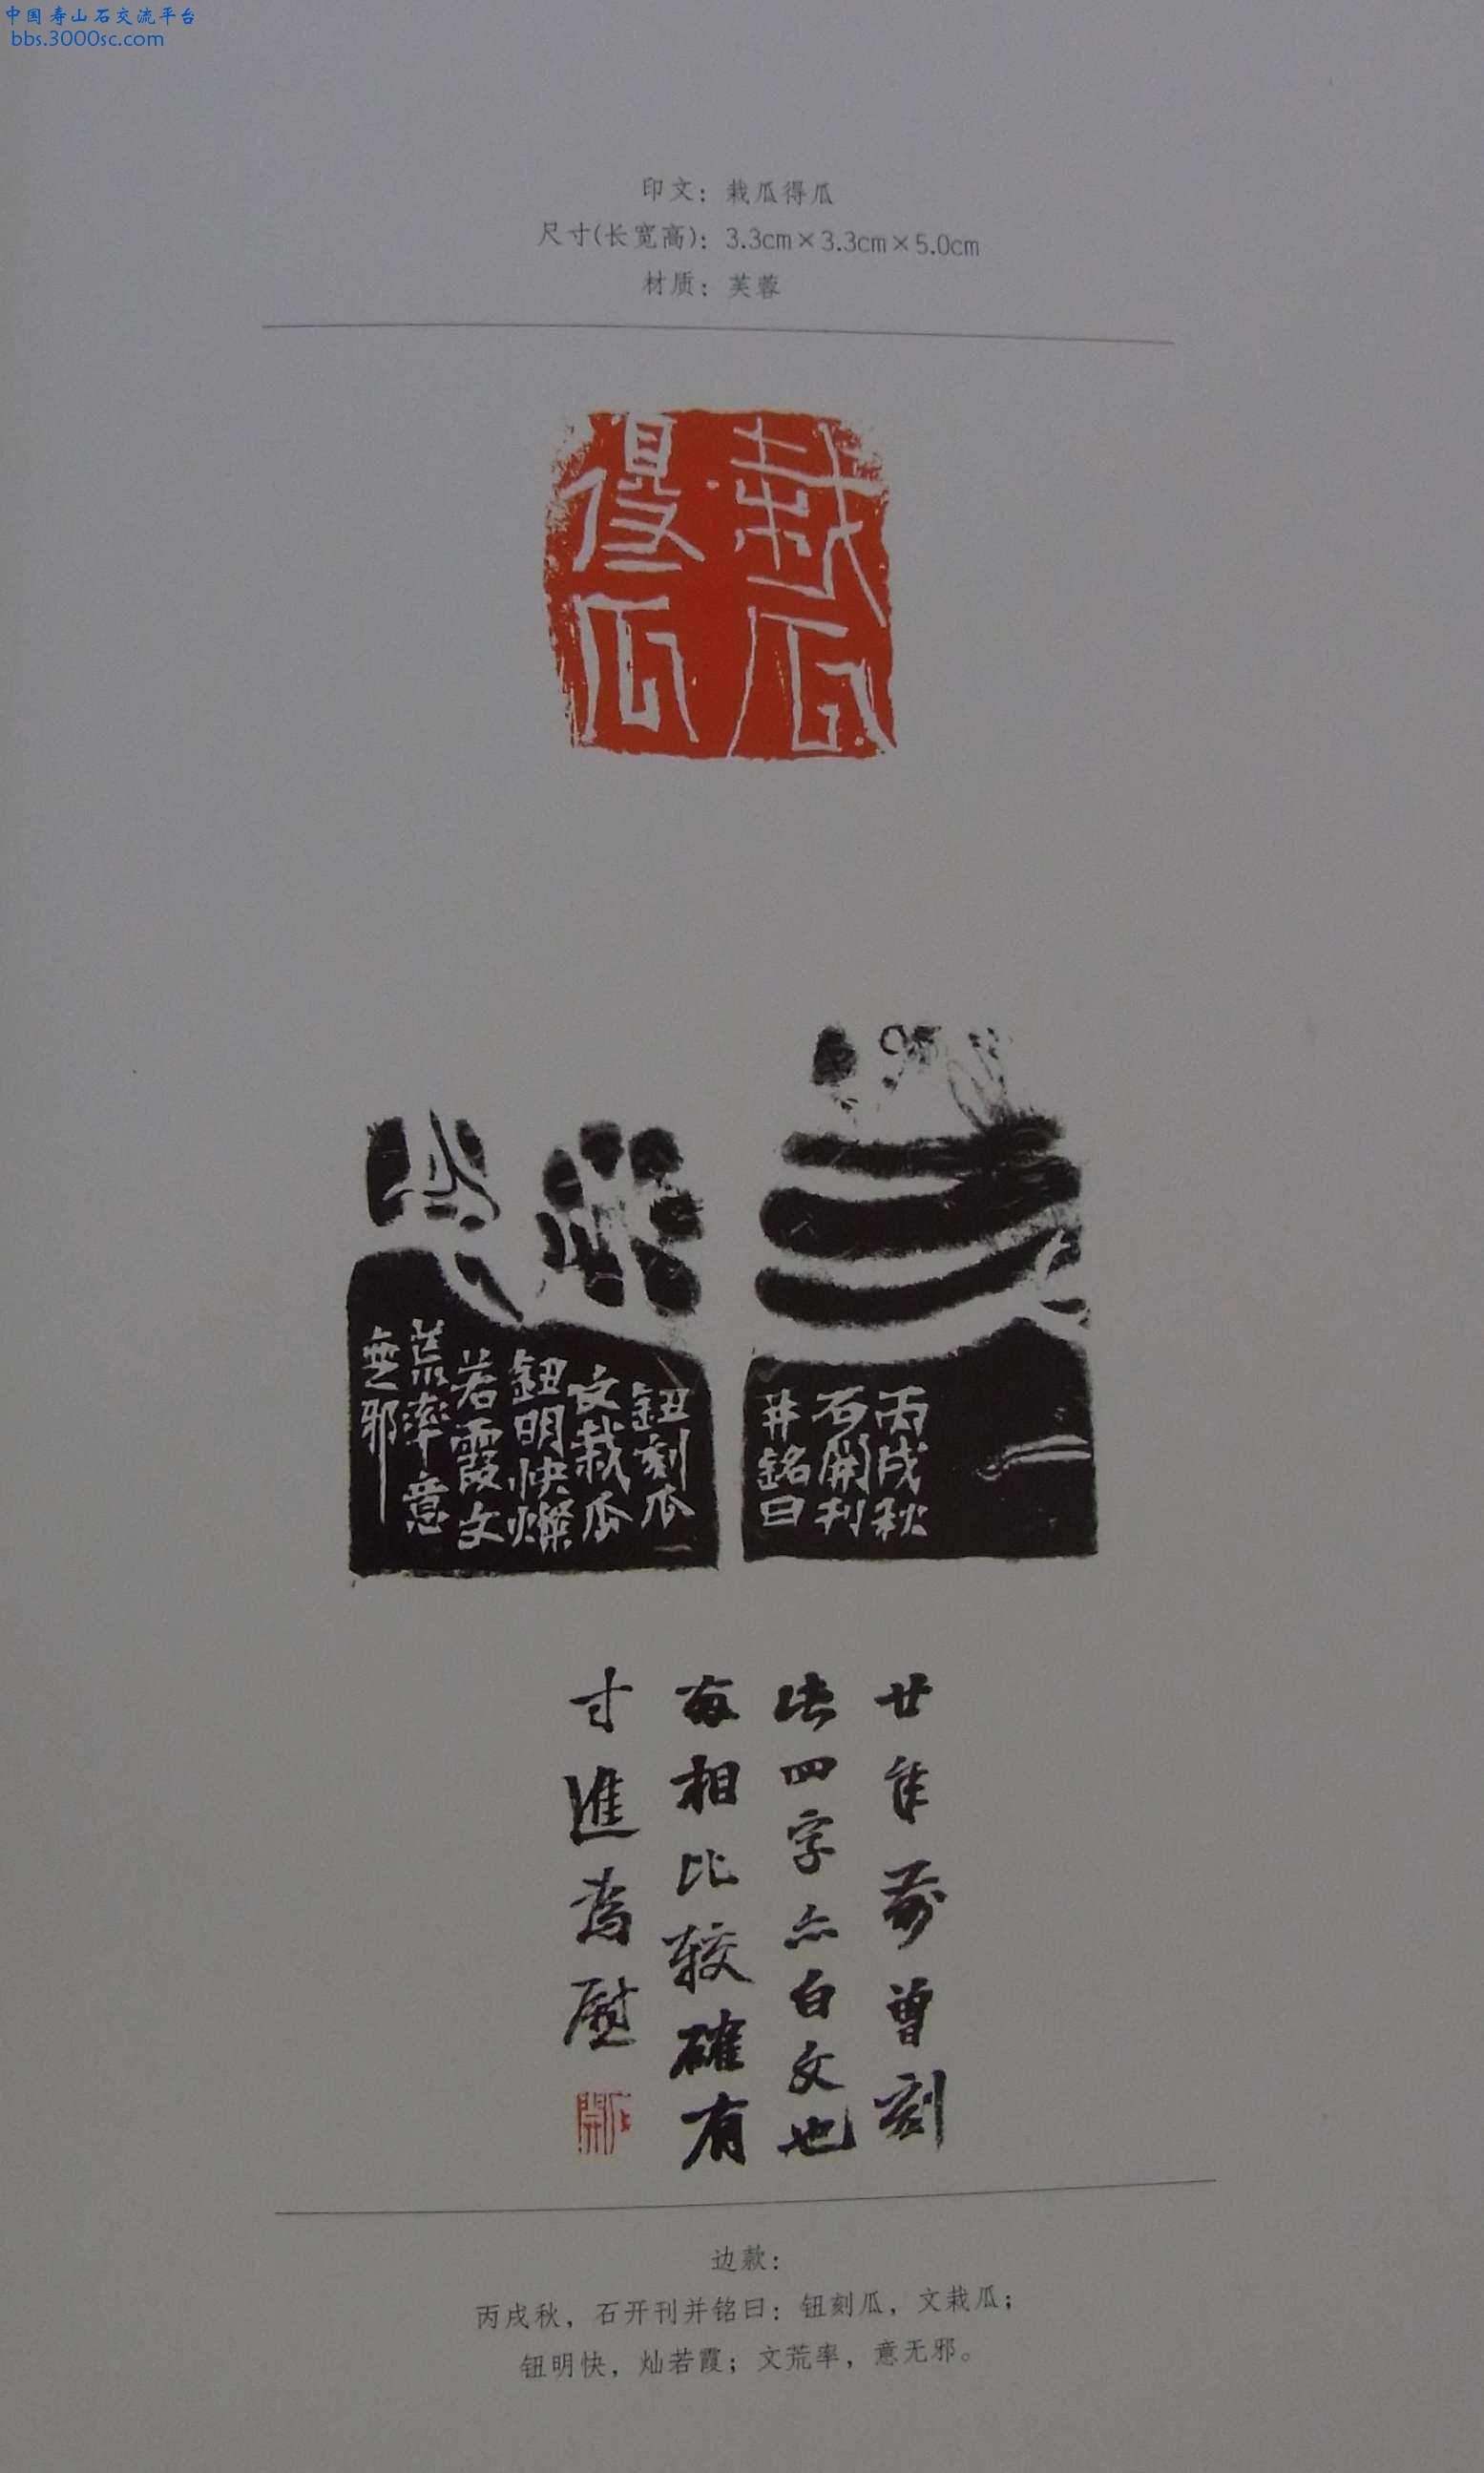 中国寿山石交流平台
bbs.3000sc.com
印文：栽瓜得瓜
尺寸(长宽高)：3.3cm×3.3cm×5.0cm
材质：芙蓉
栽瓜
得瓜
丙戌秋
石開刊
并銘曰
鈕刻瓜
文栽瓜
鈕明快燦
若霞文
荒率意
無邪
廿年前曾刻
此四字亦白文也
每相比较確有
寸進為慰
石開
边款：
丙戌秋，石开刊并铭曰：钮刻瓜，文栽瓜；
钮明快，灿若霞；文荒率，意无邪。